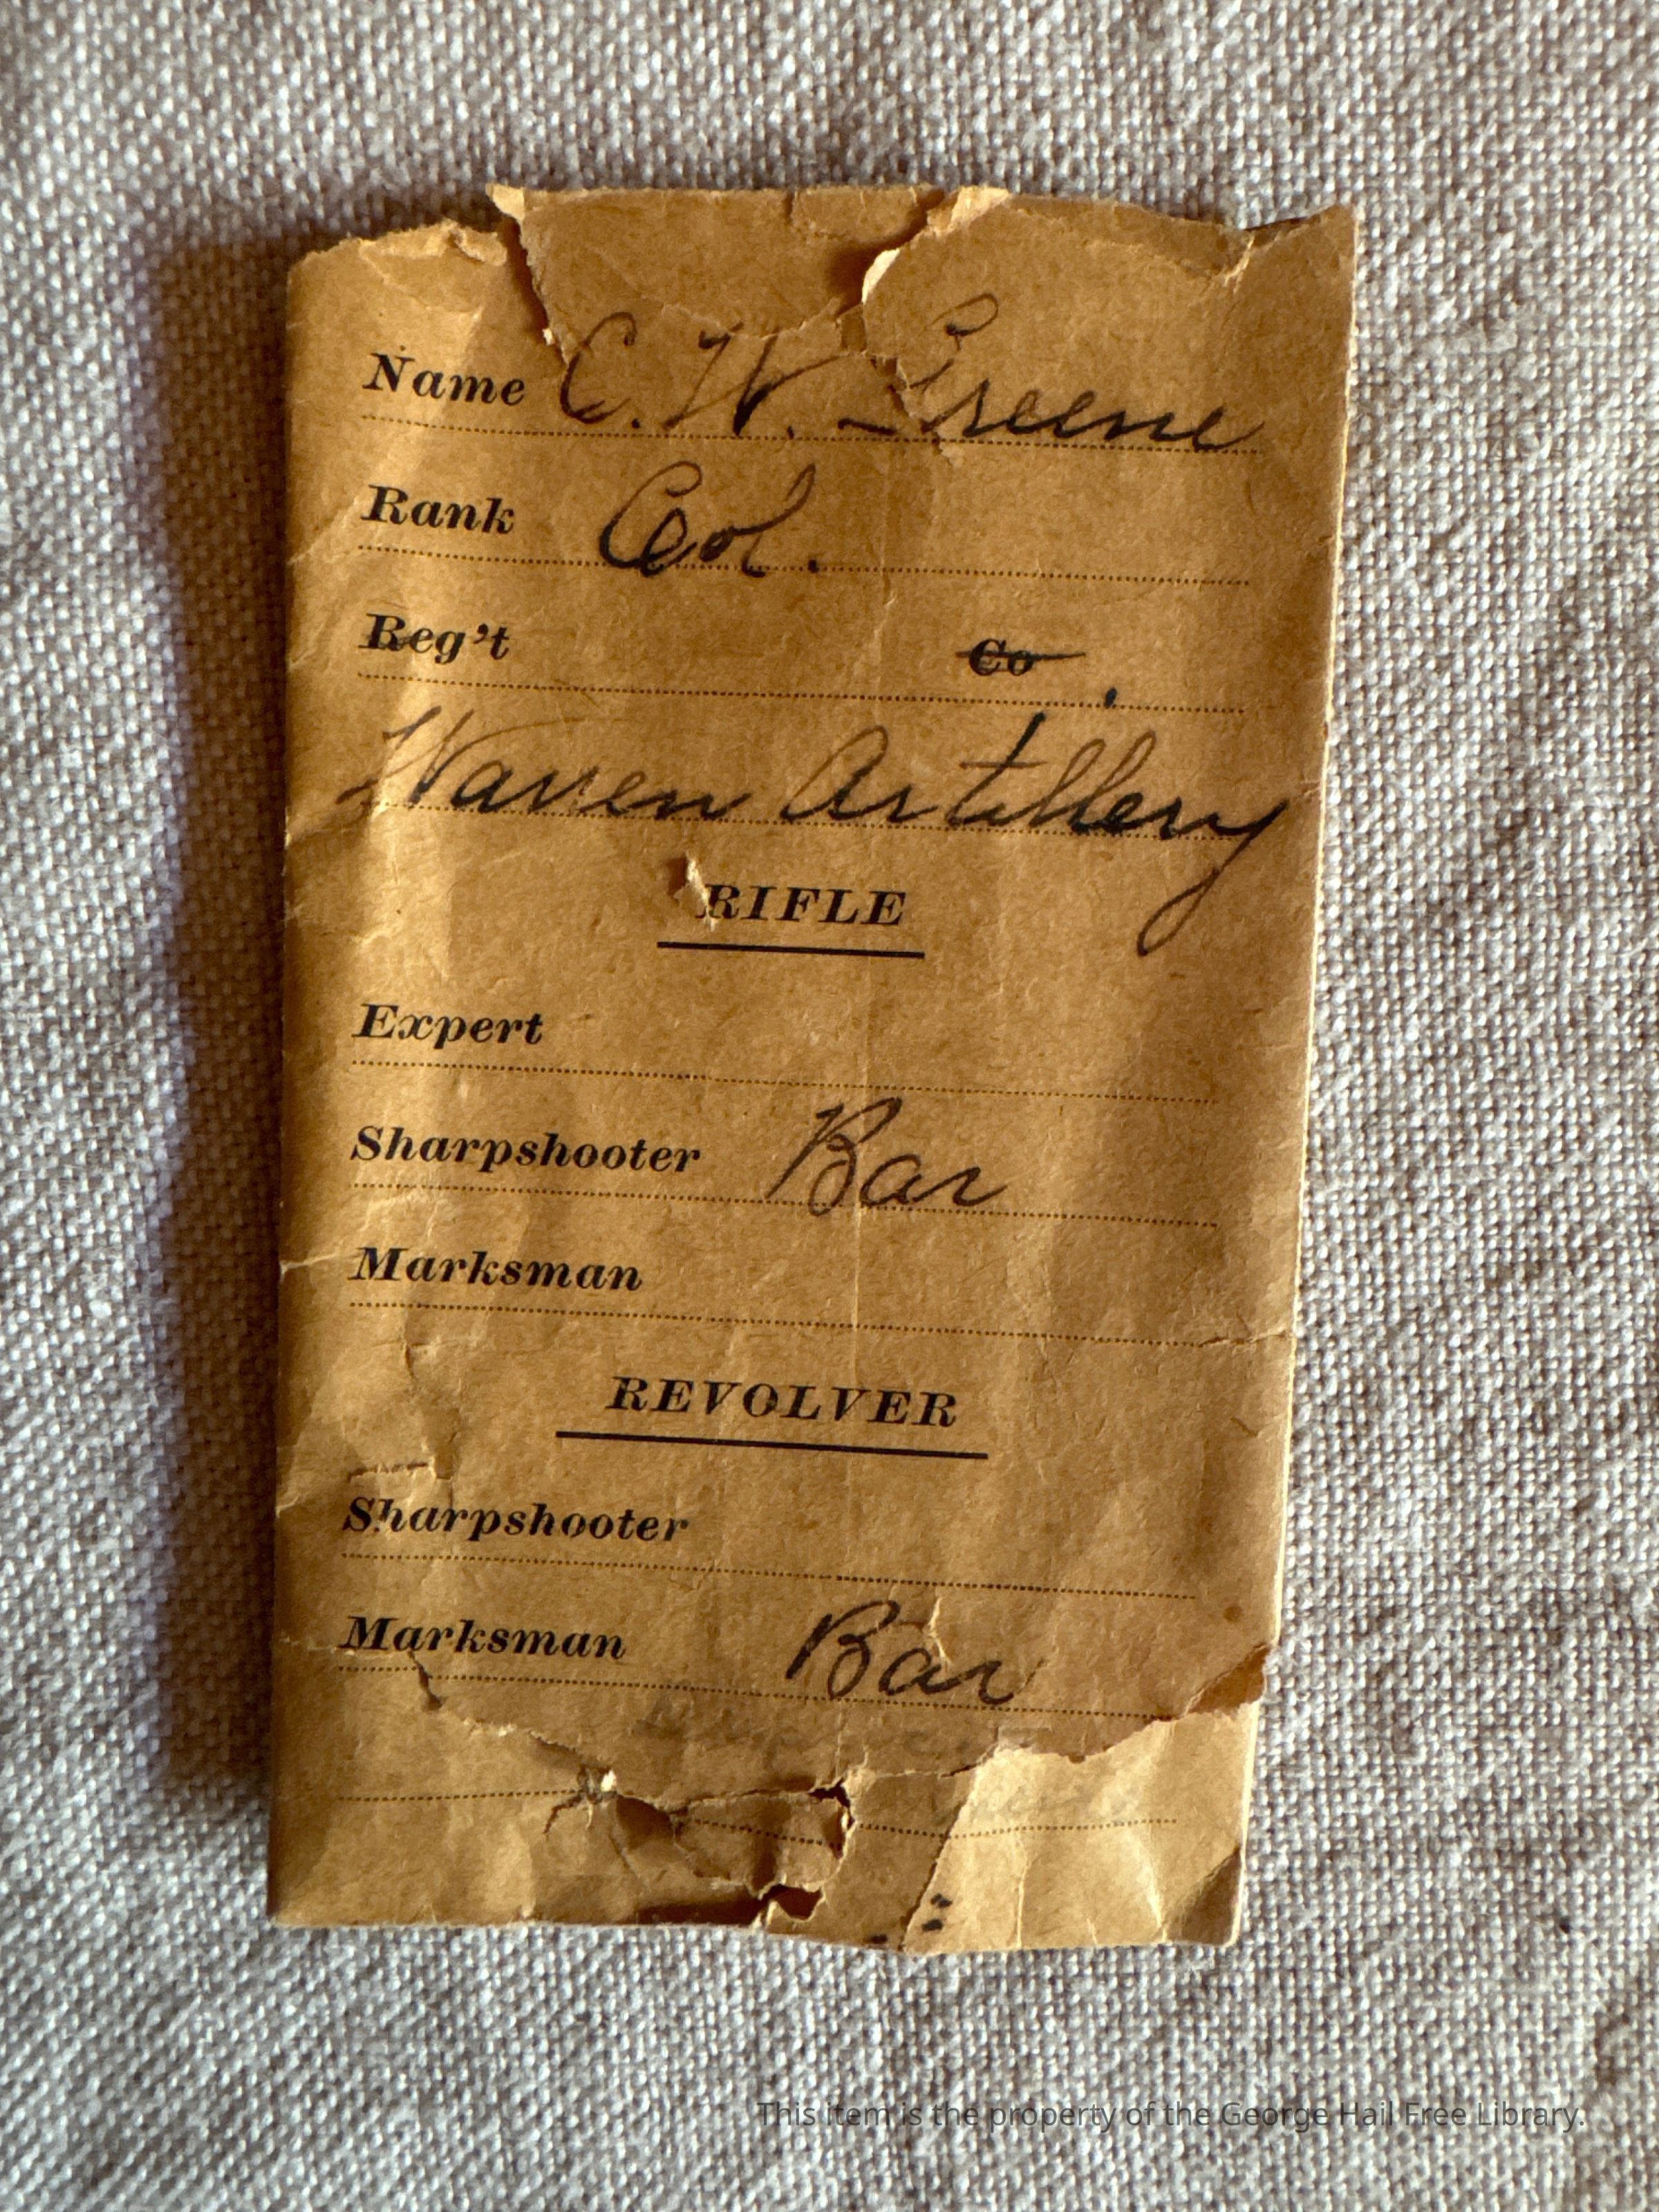 Name C. W. Greene
Rank Col.
Reg't Co
Warren Artillery
RIFLE
Expert
Sharpshooter Bar
Marksman
REVOLVER
Sharpshooter
Marksman Bar
This item is the property of the George Hail Free Library.